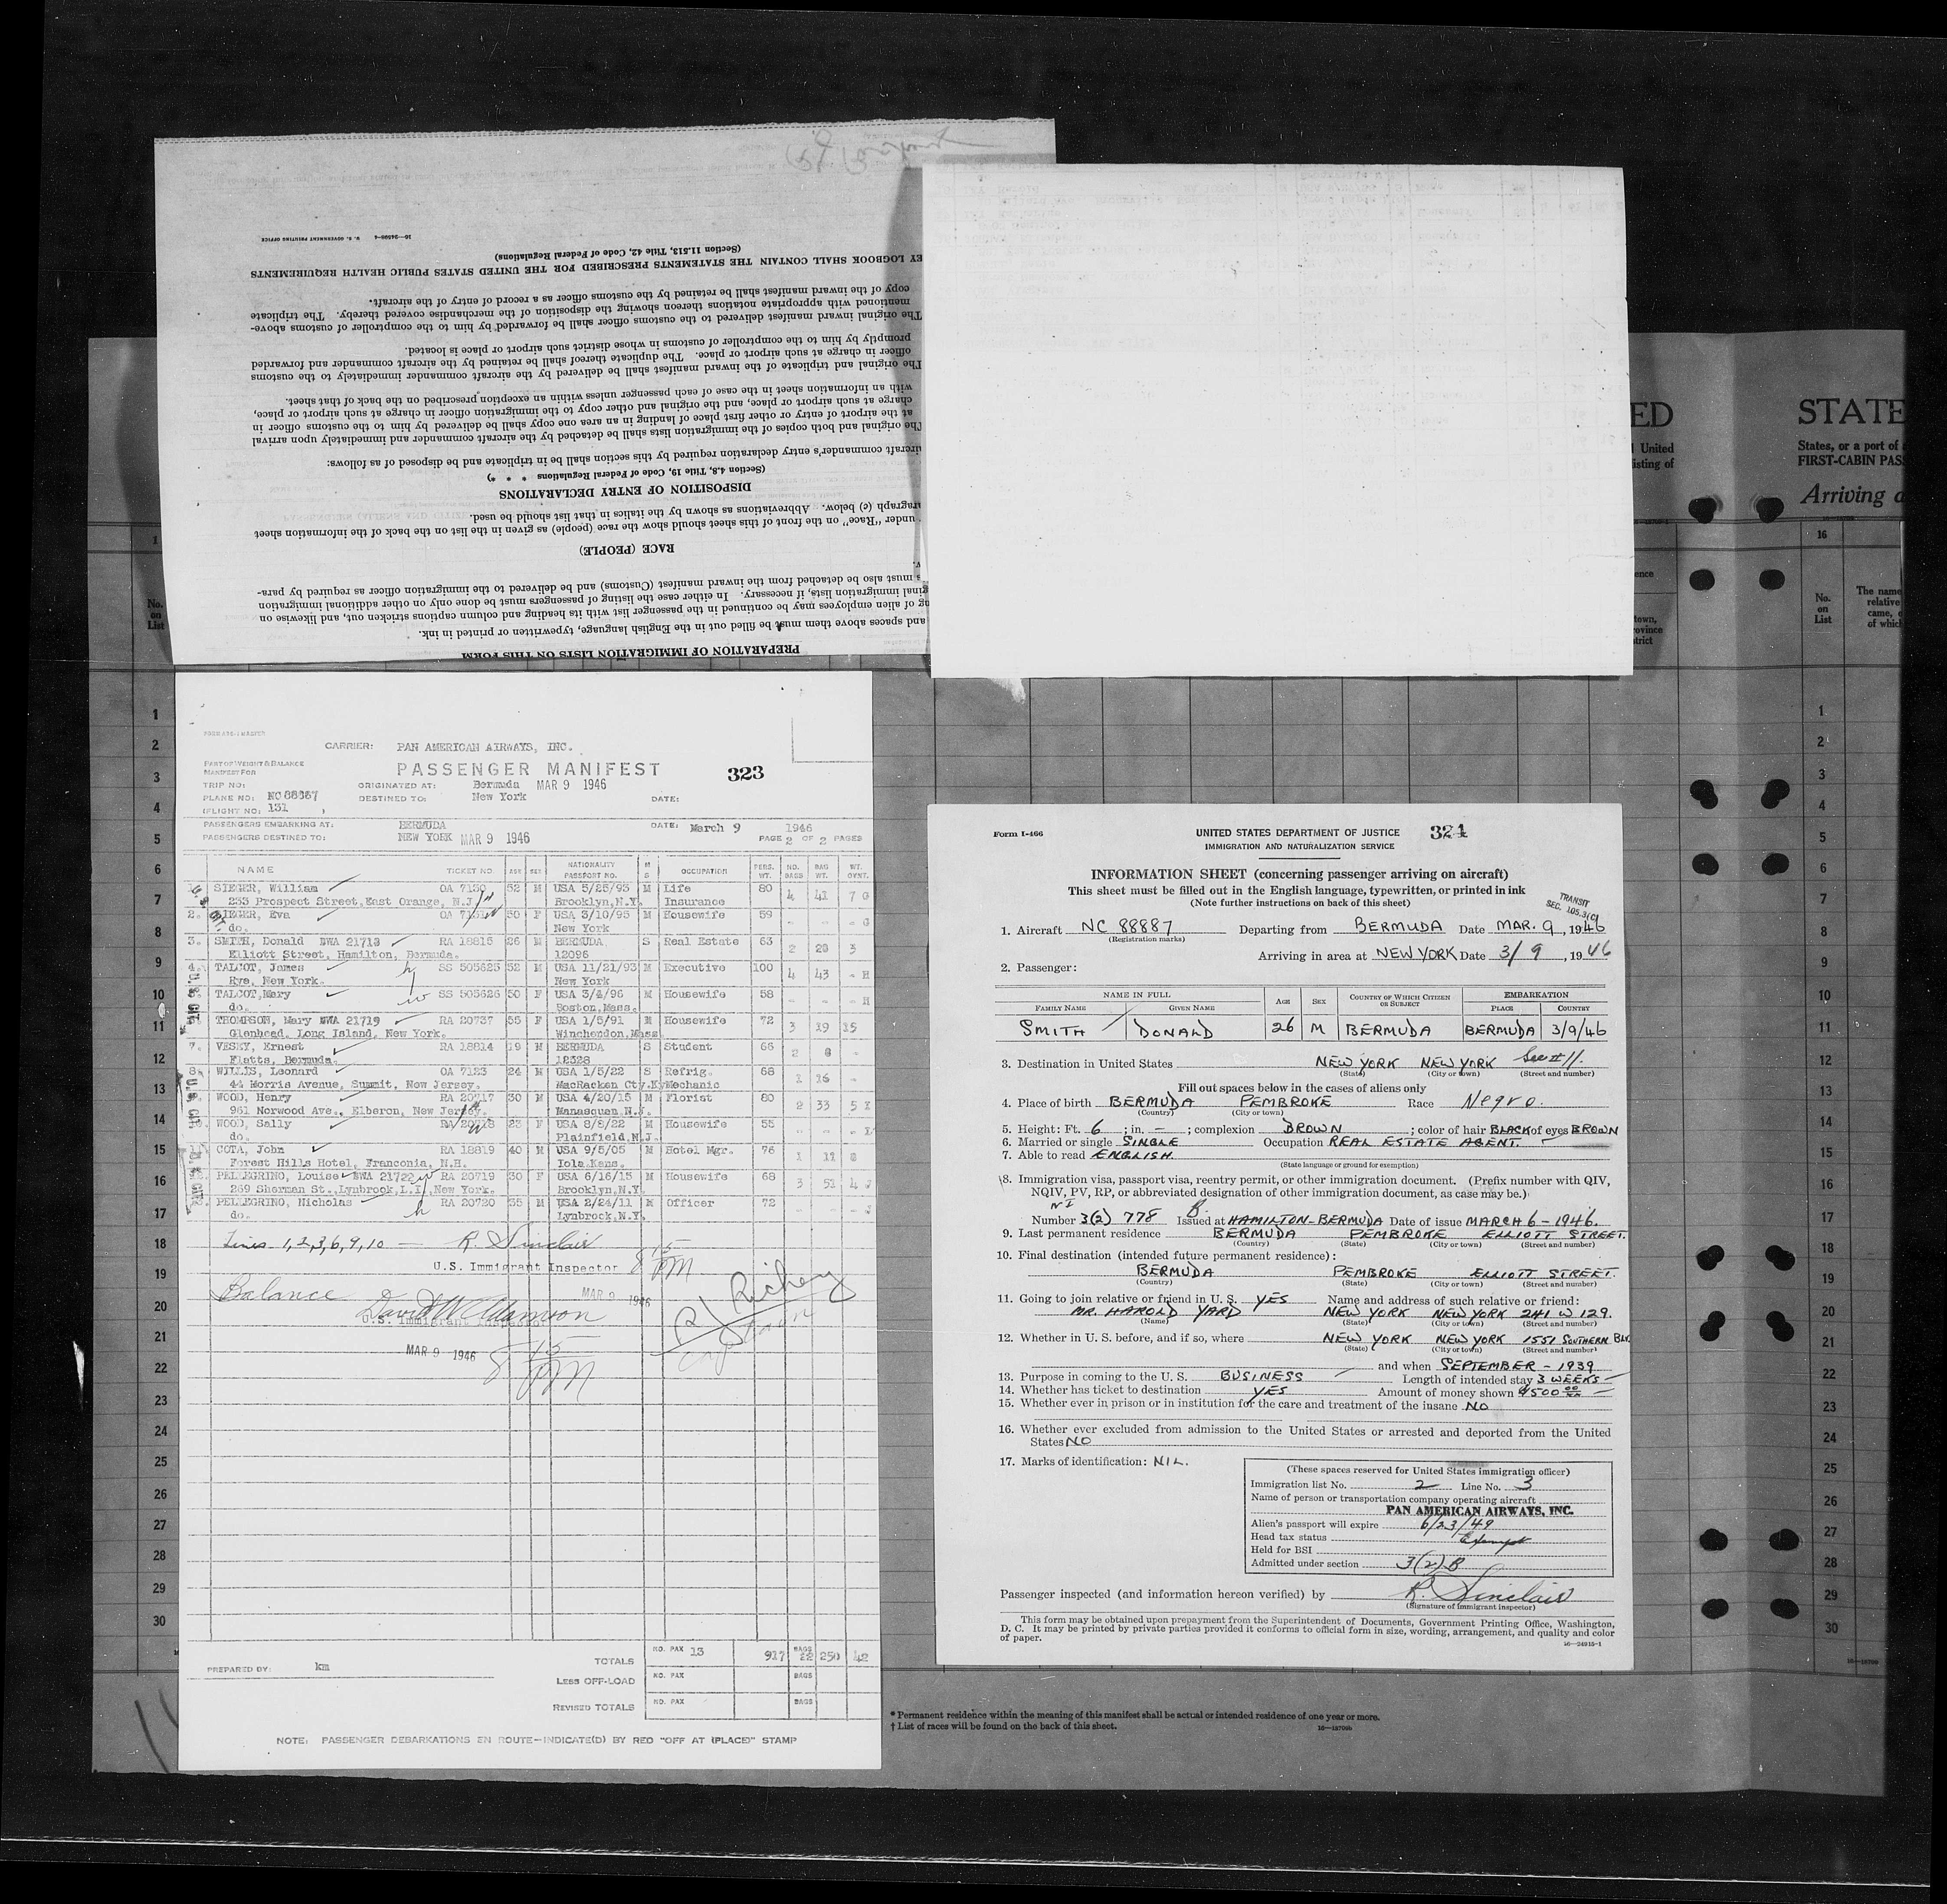 16—24596-4 U. S. GOVERNMENT PRINTING OFFICE
(Section 11.513, Title 42, Code of Federal Regulations)
LOGBOOK SHALL CONTAIN THE STATEMENTS PRESCRIBED FOR THE UNITED STATES PUBLIC HEALTH REQUIREMENTS
copy of the inward manifest shall be retained by the customs officer as a record of entry of the aircraft.
mentioned with appropriate notations thereon showing the disposition of the merchandise covered thereby. The triplicate
The original inward manifest delivered to the customs officer shall be forwarded by him to the comptroller of customs above-
promptly by him to the comptroller of customs in whose district such airport or place is located.
officer in charge at such airport or place. The duplicate thereof shall be retained by the aircraft commander and forwarded
The original and triplicate of the inward manifest shall be delivered by the aircraft commander immediately to the customs
with an information sheet in the case of each passenger unless within an exception prescribed on the back of that sheet.
charge at such airport or place, and the original and other copy to the immigration officer in charge at such airport or place,
at the airport of entry or other first place of landing in an area one copy shall be delivered by him to the customs officer in
The original and both copies of the immigration lists shall be detached by the aircraft commander and immediately upon arrival
aircraft commander's entry declaration required by this section shall be in triplicate and be disposed of as follows:
(Section 4.8, Title 19, Code of Federal Regulations * * *)
DISPOSITION OF ENTRY DECLARATIONS
paragraph (c) below. Abbreviations as shown by the italics in that list should be used.
under "Race" on the front of this sheet should show the race (people) as given in the list on the back of the information sheet
RACE (PEOPLE)
must also be detached from the inward manifest (Customs) and be delivered to the immigration officer as required by para-
original immigration lists, if necessary. In either case the listing of passengers must be done only on other additional immigration
of alien employees may be continued in the passenger list with its heading and column captions stricken out, and likewise on
and spaces above them must be filled out in the English language, typewritten or printed in ink.
PREPARATION OF IMMIGRATION LISTS ON THIS FORM
CARRIER: PAN AMERICAN AIRWAYS, INC.
PART OF WEIGHT & BALANCE
MANIFEST FOR
PASSENGER MANIFEST 323
TRIP NO: ORIGINATED AT: Bermuda MAR 9 1946
PLANE NO: NC 88887 DESTINED TO: New York DATE:
(FLIGHT NO: 131 )
PASSENGERS EMBARKING AT: BERMUDA DATE: March 9 1946
PASSENGERS DESTINED TO: NEW YORK MAR 9 1946 PAGE 2 OF 2 PAGES
NAME TICKET NO. AGE SEX NATIONALITY PASSPORT NO. M S OCCUPATION PERS. WT. NO. BAGS BAG WT. WT. OVNT.
SIEGER, William OA 7130 52 M USA 5/25/93 M Life 80 4 41 7 G
233 Prospect Street, East Orange, N.J. Brooklyn, N.Y. Insurance
2. SIEGER, Eva OA 7131 50 F USA 3/10/95 M Housewife 59 - - - G
do. New York
3. SMITH, Donald NWA 21713 RA 18815 26 M BERMUDA S Real Estate 63 2 29 3
Elliott Street, Hamilton, Bermuda. 12096
4. TALCOT, James SS 505625 52 M USA 11/21/93 M Executive 100 4 43 - H
Rye, New York. New York
5. TALCOT, Mary SS 505626 50 F USA 3/4/96 M Housewife 58 - - - H
do. Boston, Mass.
THOMPSON, Mary NWA 21719 RA 20737 55 F USA 1/5/91 M Housewife 72 3 19 15
Glenhead, Long Island, New York. Winchendon, Mass.
7. VESEY, Ernest RA 18814 19 M BERMUDA S Student 66 2 8 -
Flatts, Bermuda. 12528
8. WILLIS, Leonard OA 7123 24 M USA 1/5/22 S Refrig. 68 1 16 -
44 Morris Avenue, Summit, New Jersey. MacRacken Cty. Ky Mechanic
WOOD, Henry RA 20717 30 M USA 4/20/15 M Florist 80 2 33 5 I
961 Norwood Ave., Elberon, New Jersey. Manasquan, N.J.
WOOD, Sally RA 20718 23 F USA 8/8/22 M Housewife 55 - - - I
do. Plainfield, N.J.
COTA, John RA 18819 40 M USA 9/5/05 M Hotel Mgr. 76 1 11 8
Forest Hills Hotel, Franconia, N.H. Iola, Kans.
PELLEGRINO, Louise NWA 21722 RA 20719 30 F USA 6/16/15 M Housewife 68 3 51 4 J
269 Sherman St., Lynbrook, L.I., New York. Brooklyn, N.Y.
PELLEGRINO, Nicholas RA 20720 35 M USA 2/24/11 M Officer 72 - - - J
do. Lynbrook, N.Y.
Lines 1,2,3,6,9,10 — R. Sinclair
U.S. Immigrant Inspector 8 15 PM
Balance MAR 9 1946
David W. Adamson
U.S. Immigrant Inspector
MAR 9 1946 8 15 PM
TOTALS NO. PAX 13 917 BAGS 22 250 42
PREPARED BY: km
LESS OFF-LOAD NO. PAX BAGS
REVISED TOTALS NO. PAX BAGS
NOTE: PASSENGER DEBARKATIONS EN ROUTE—INDICATE(D) BY RED "OFF AT (PLACE)" STAMP
Form I-466 UNITED STATES DEPARTMENT OF JUSTICE 324
IMMIGRATION AND NATURALIZATION SERVICE
INFORMATION SHEET (concerning passenger arriving on aircraft)
This sheet must be filled out in the English language, typewritten, or printed in ink
(Note further instructions on back of this sheet)
TRANSIT
SEC. 105.3(C)
1. Aircraft NC 88887 Departing from BERMUDA Date MAR. 9, 1946
(Registration marks)
Arriving in area at NEW YORK Date 3/9, 1946
2. Passenger:
NAME IN FULL AGE SEX COUNTRY OF WHICH CITIZEN OR SUBJECT EMBARKATION
FAMILY NAME GIVEN NAME PLACE COUNTRY
SMITH DONALD 26 M BERMUDA BERMUDA 3/9/46
3. Destination in United States NEW YORK NEW YORK See #11.
(State) (City or town) (Street and number)
Fill out spaces below in the cases of aliens only
4. Place of birth BERMUDA PEMBROKE Race Negro.
(Country) (City or town)
5. Height: Ft. 6; in. –; complexion BROWN; color of hair BLACK of eyes BROWN
6. Married or single SINGLE Occupation REAL ESTATE AGENT.
7. Able to read ENGLISH.
(State language or ground for exemption)
8. Immigration visa, passport visa, reentry permit, or other immigration document. (Prefix number with QIV,
NQIV, PV, RP, or abbreviated designation of other immigration document, as case may be.)
NI
Number 3(2) 778 B. Issued at HAMILTON-BERMUDA Date of issue MARCH 6-1946.
9. Last permanent residence BERMUDA PEMBROKE ELLIOTT STREET.
(Country) (State) (City or town) (Street and number)
10. Final destination (intended future permanent residence):
BERMUDA PEMBROKE ELLIOTT STREET.
(Country) (State) (City or town) (Street and number)
11. Going to join relative or friend in U. S. YES Name and address of such relative or friend:
MR. HAROLD YARD NEW YORK NEW YORK 241 W 129.
(Name) (State) (City or town) (Street and number)
12. Whether in U. S. before, and if so, where NEW YORK NEW YORK 1551 SOUTHERN BLV.
(State) (City or town) (Street and number)
and when SEPTEMBER - 1939
13. Purpose in coming to the U. S. BUSINESS Length of intended stay 3 WEEKS
14. Whether has ticket to destination YES Amount of money shown $500 00
15. Whether ever in prison or in institution for the care and treatment of the insane NO
16. Whether ever excluded from admission to the United States or arrested and deported from the United
States NO
17. Marks of identification: NIL.
(These spaces reserved for United States immigration officer)
Immigration list No. 2 Line No. 3
Name of person or transportation company operating aircraft
PAN AMERICAN AIRWAYS, INC.
Alien's passport will expire 6/23/49
Head tax status Exempt
Held for BSI
Admitted under section 3(2) B
Passenger inspected (and information hereon verified) by R. Sinclair
(Signature of immigrant inspector)
This form may be obtained upon prepayment from the Superintendent of Documents, Government Printing Office, Washington,
D. C. It may be printed by private parties provided it conforms to official form in size, wording, arrangement, and quality and color
of paper.
16—24915-1
* Permanent residence within the meaning of this manifest shall be actual or intended residence of one year or more.
† List of races will be found on the back of this sheet.
ED STATE
United States, or a port of
listing of FIRST-CABIN PAS
Arriving a
16
No.
on
List
The name
relative
came,
of which
1
2
3
4
5
6
7
8
9
10
11
12
13
14
15
16
17
18
19
20
21
22
23
24
25
26
27
28
29
30